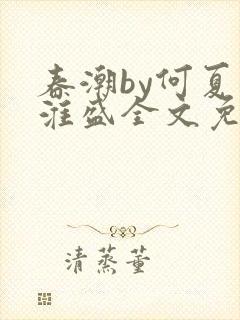 春潮by何夏
淮盛全文免
清蒸董